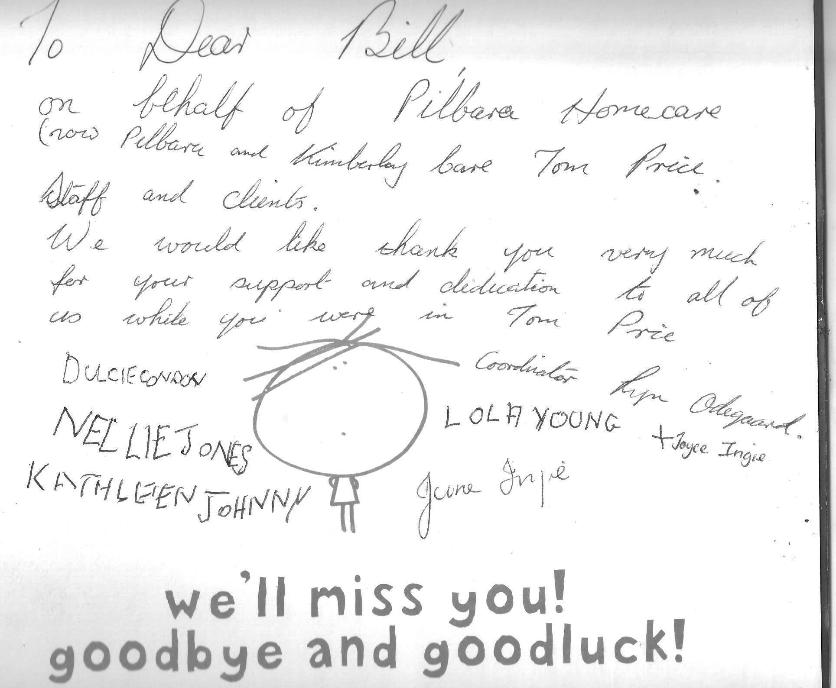 To Dear Bill,
on behalf of Pilbara Homecare
(now Pilbara and Kimberley Care Tom Price.
Staff and clients.
We would like thank you very much
for your support and dedication to all of
us while you were in Tom Price
Coordinator Lyn Odegaard.
DULCIE CONDON
LOLA YOUNG
+ Joyce Ingie
NELLIE JONES
KATHLEEN JOHNNY
June Ingie
we'll miss you!
goodbye and goodluck!